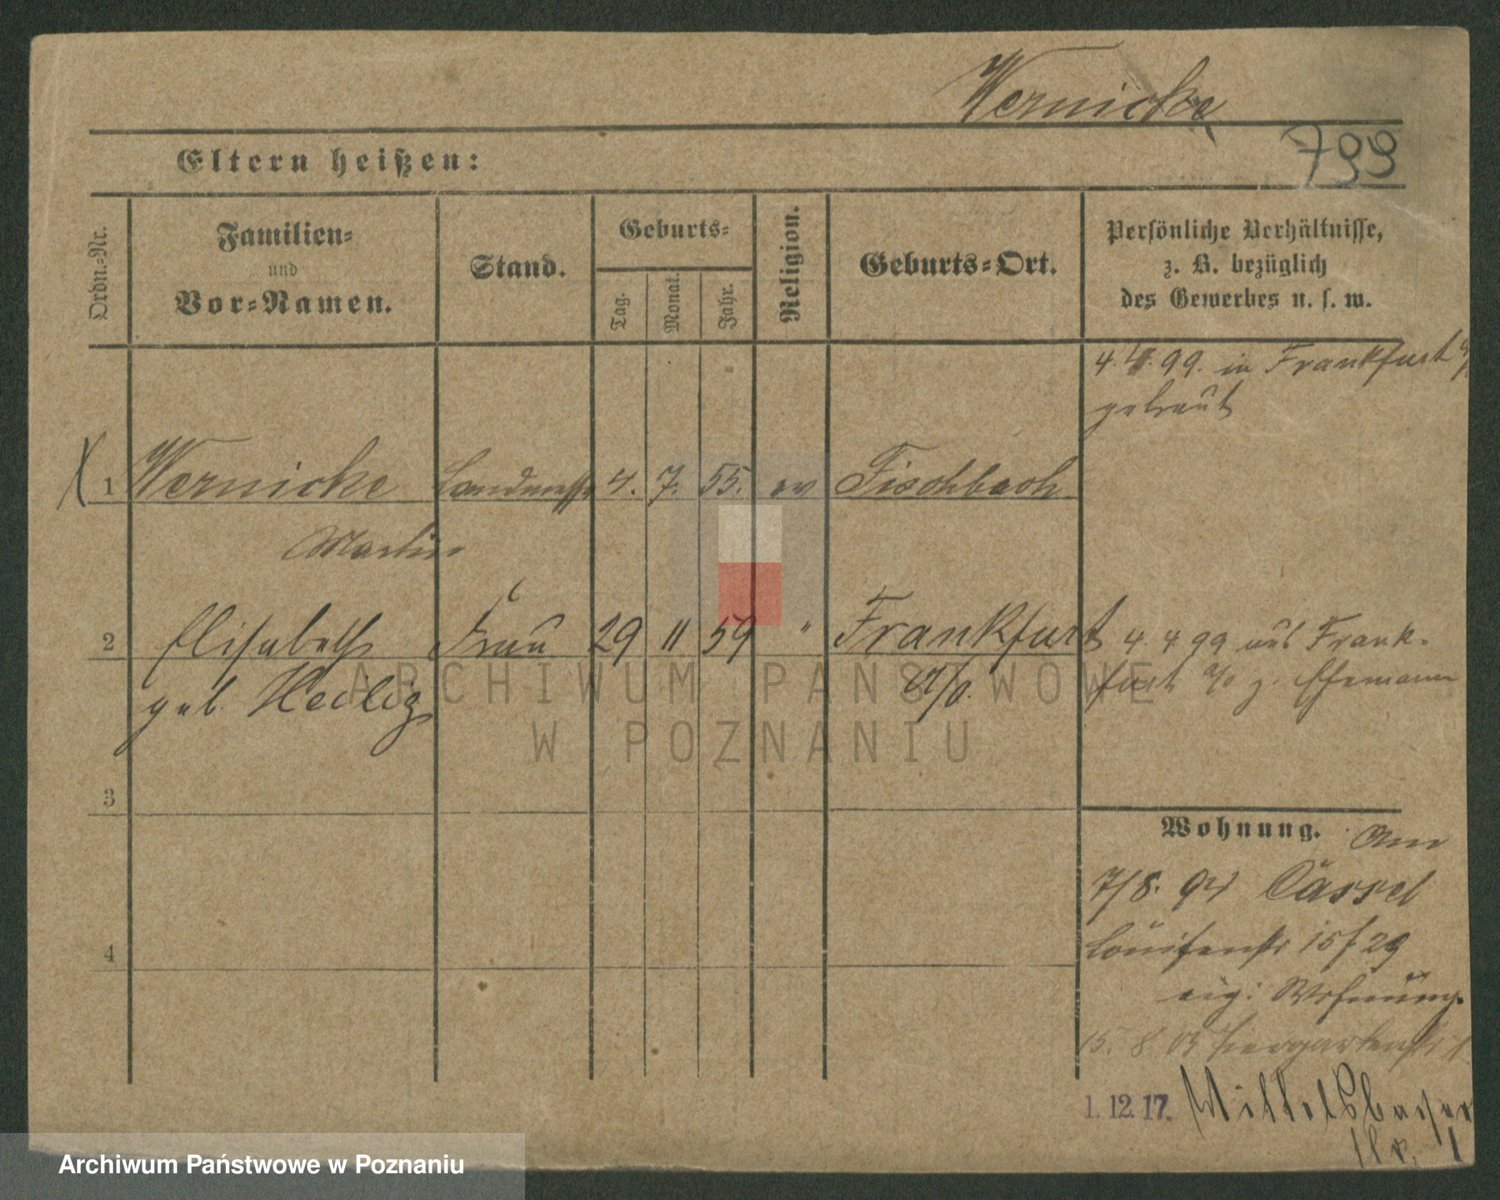 Wernicke
799
Eltern heißen:
Ordn.-Nr.
Familien-
und
Vor-Namen.
Stand.
Geburts-
Tag.
Monat.
Jahr.
Religion.
Geburts-Ort.
Persönliche Verhältnisse,
z. B. bezüglich
des Gewerbes u. s. w.
4. 4. 99. in Frankfurt
getraut
1 Wernicke Landmesser 4. 7. 55. ev Fischbach
Martin
2 Elisabeth Frau 29 11 59 " Frankfurt 4. 4 99 aus Frank-
geb. Heilig a/o. furt a/o z. Ehemann
3
Wohnung.
7/8. Cassel
4
Louisenstr 15 / 29
eig. Wohnung.
15. 8. 03 Tiergartenstr 1
1. 12. 17.
ARCHIWUM PAŃSTWOWE
W POZNANIU
Archiwum Państwowe w Poznaniu